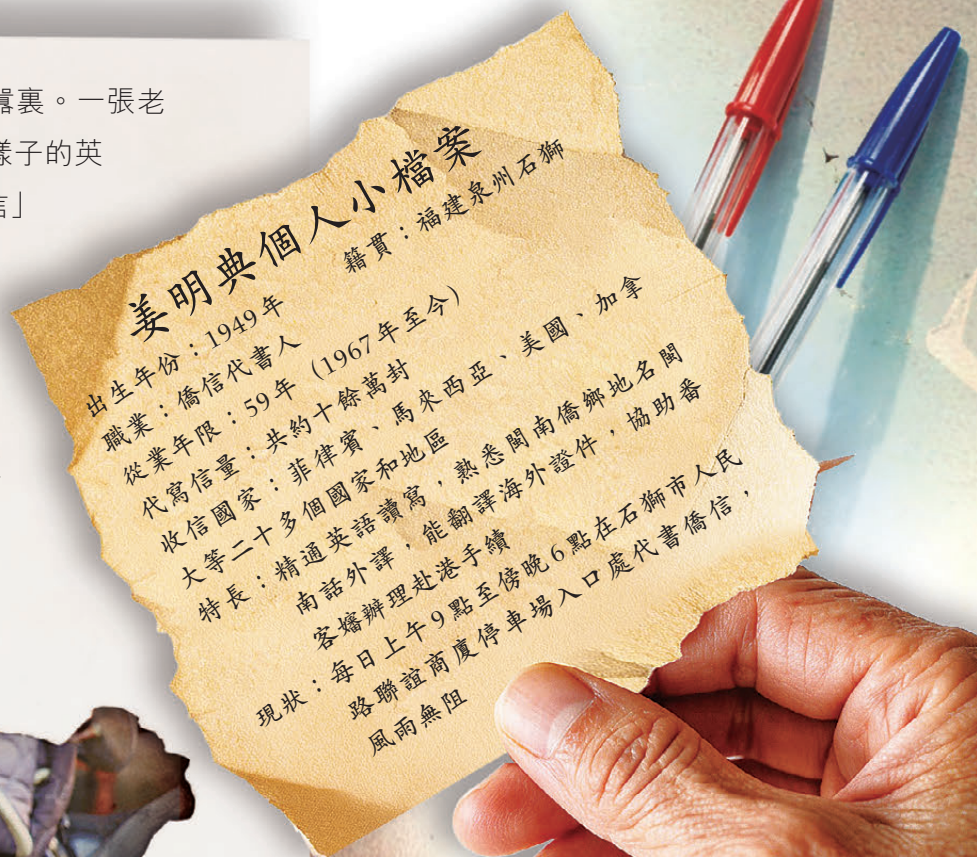 囂裏。一張老
樣子的英
信」
姜明典個人小檔案
出生年份：1949年 籍貫：福建泉州石獅
職業：僑信代書人
從業年限：59年（1967年至今）
代寫信量：共約十餘萬封
收信國家：菲律賓、馬來西亞、美國、加拿
大等二十多個國家和地區
特長：精通英語讀寫，熟悉閩南僑鄉地名閩
南話外譯，能翻譯海外證件，協助番
客嬸辦理赴港手續
現狀：每日上午9點至傍晚6點在石獅市人民
路聯誼商廈停車場入口處代書僑信，
風雨無阻